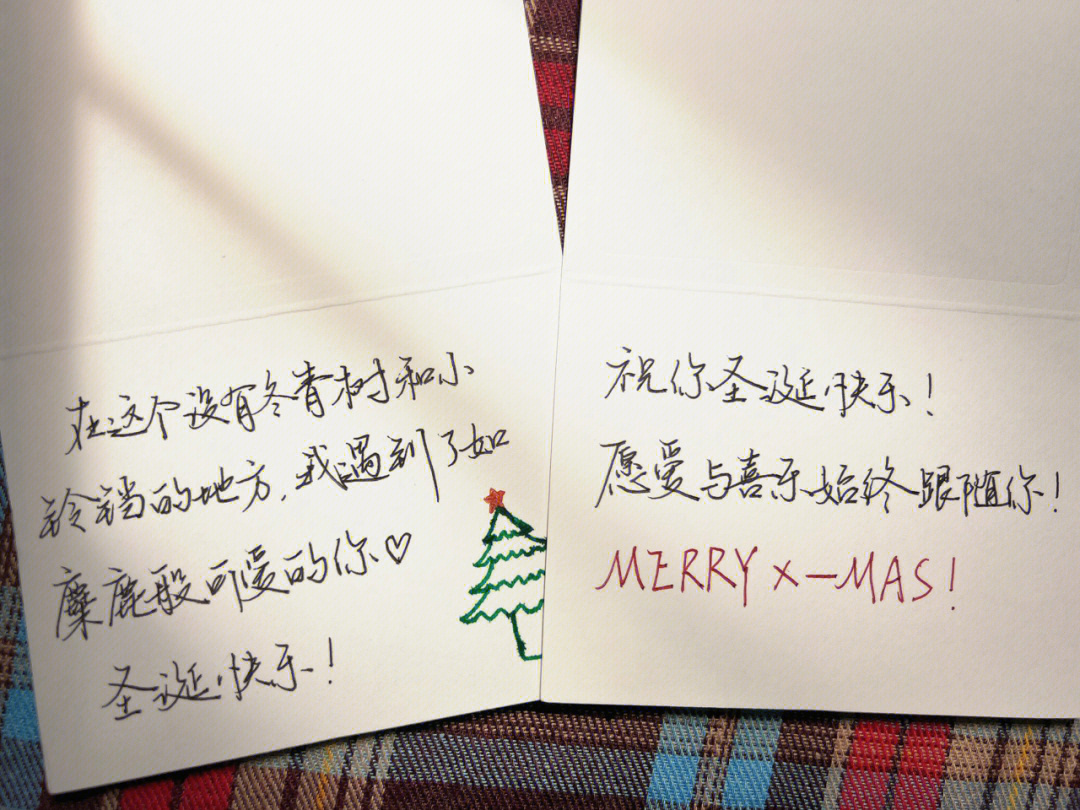 在这个没有冬青树和小
铃铛的地方,我遇到了如
麋鹿般可爱的你♡
圣诞快乐!
祝你圣诞快乐!
愿爱与喜乐始终跟随你!
MERRY X-MAS!